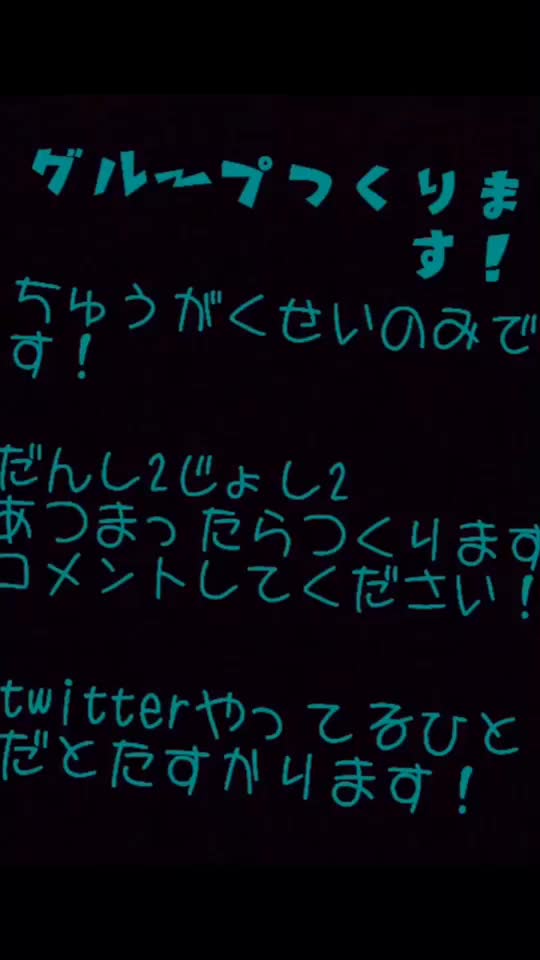 グループつくりま
す！
ちゅうがくせいのみで
す！
だんし2じょし2
あつまったらつくります
コメントしてください！
twitterやってるひと
だとたすかります！